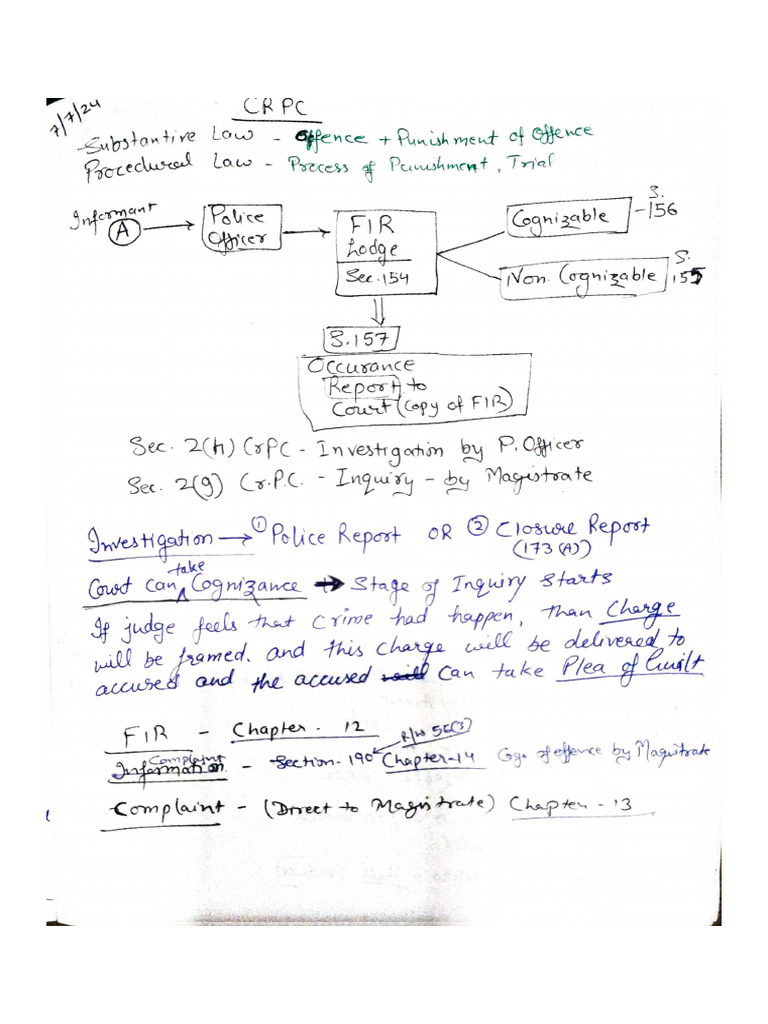 7/7/24
CRPC
Substantive Law - Offence + Punishment of Offence
Procedural Law - Process of Punishment, Trial
Informant
A
Police
Officer
FIR
Lodge
Sec. 154
Cognizable
S.
-156
Non. Cognizable
S.
155
S.157
Occurance
Report to
Court (copy of FIR)
Sec. 2(h) CrPC - Investigation by P. Officer
Sec. 2(g) Cr.P.C. - Inquiry - by Magistrate
Investigation → ① Police Report OR ② Closure Report
(173(A))
take
Court can Cognizance → Stage of Inquiry starts
If judge feels that crime had happen, than Charge
will be framed. and this charge will be delivered to
accused and the accused will can take Plea of Guilt
FIR - Chapter. 12
R/W 56(3)
Complaint
Information - Section-190 Chapter-14 Cog. of offence by Magistrate
Complaint - (Direct to Magistrate) Chapter - 13